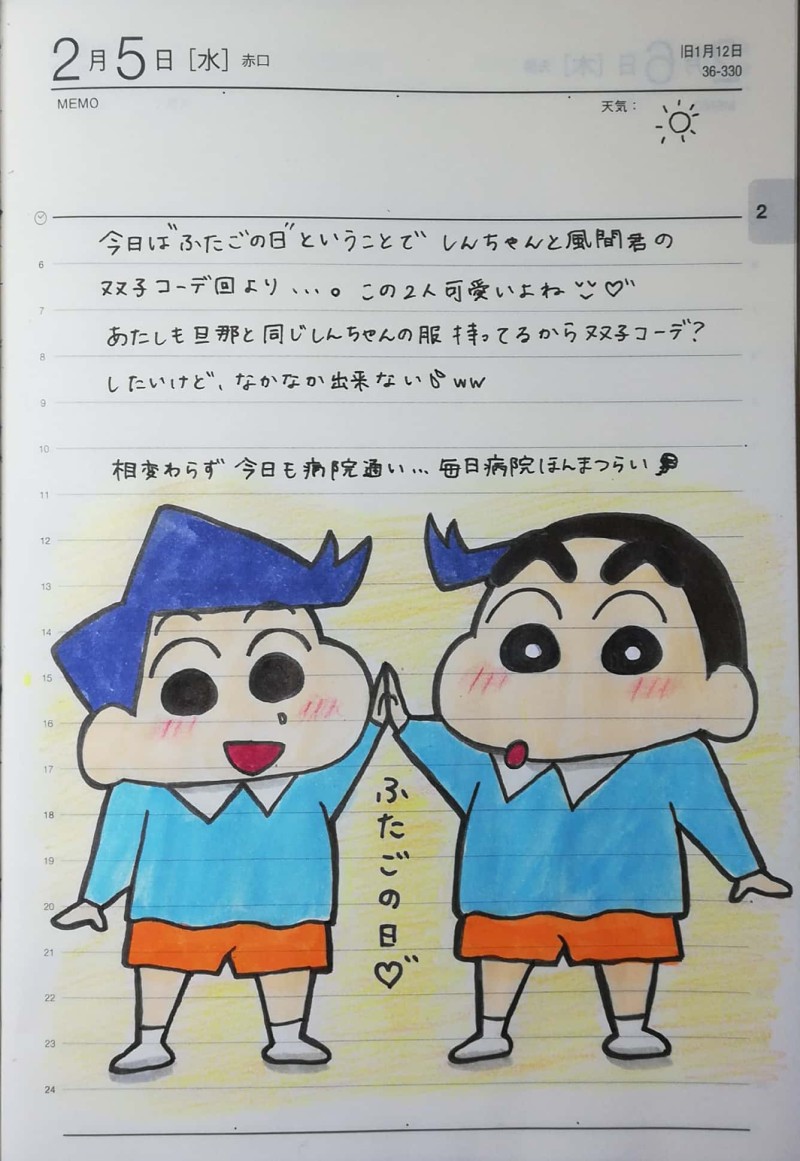 2月5日［水］赤口
旧1月12日
36-330
MEMO
天気：
2
今日は"ふたごの日"ということで しんちゃんと風間君の
6
双子コーデ回より...。この2人可愛いよね♡
7
あたしも旦那と同じしんちゃんの服 持ってるから双子コーデ?
8
したいけど、なかなか出来ない ww
9
10
相変わらず 今日も病院通い... 毎日病院ほんまつらい
11
12
13
14
15
16
17
18
19
20
21
22
23
24
ふたごの日♡